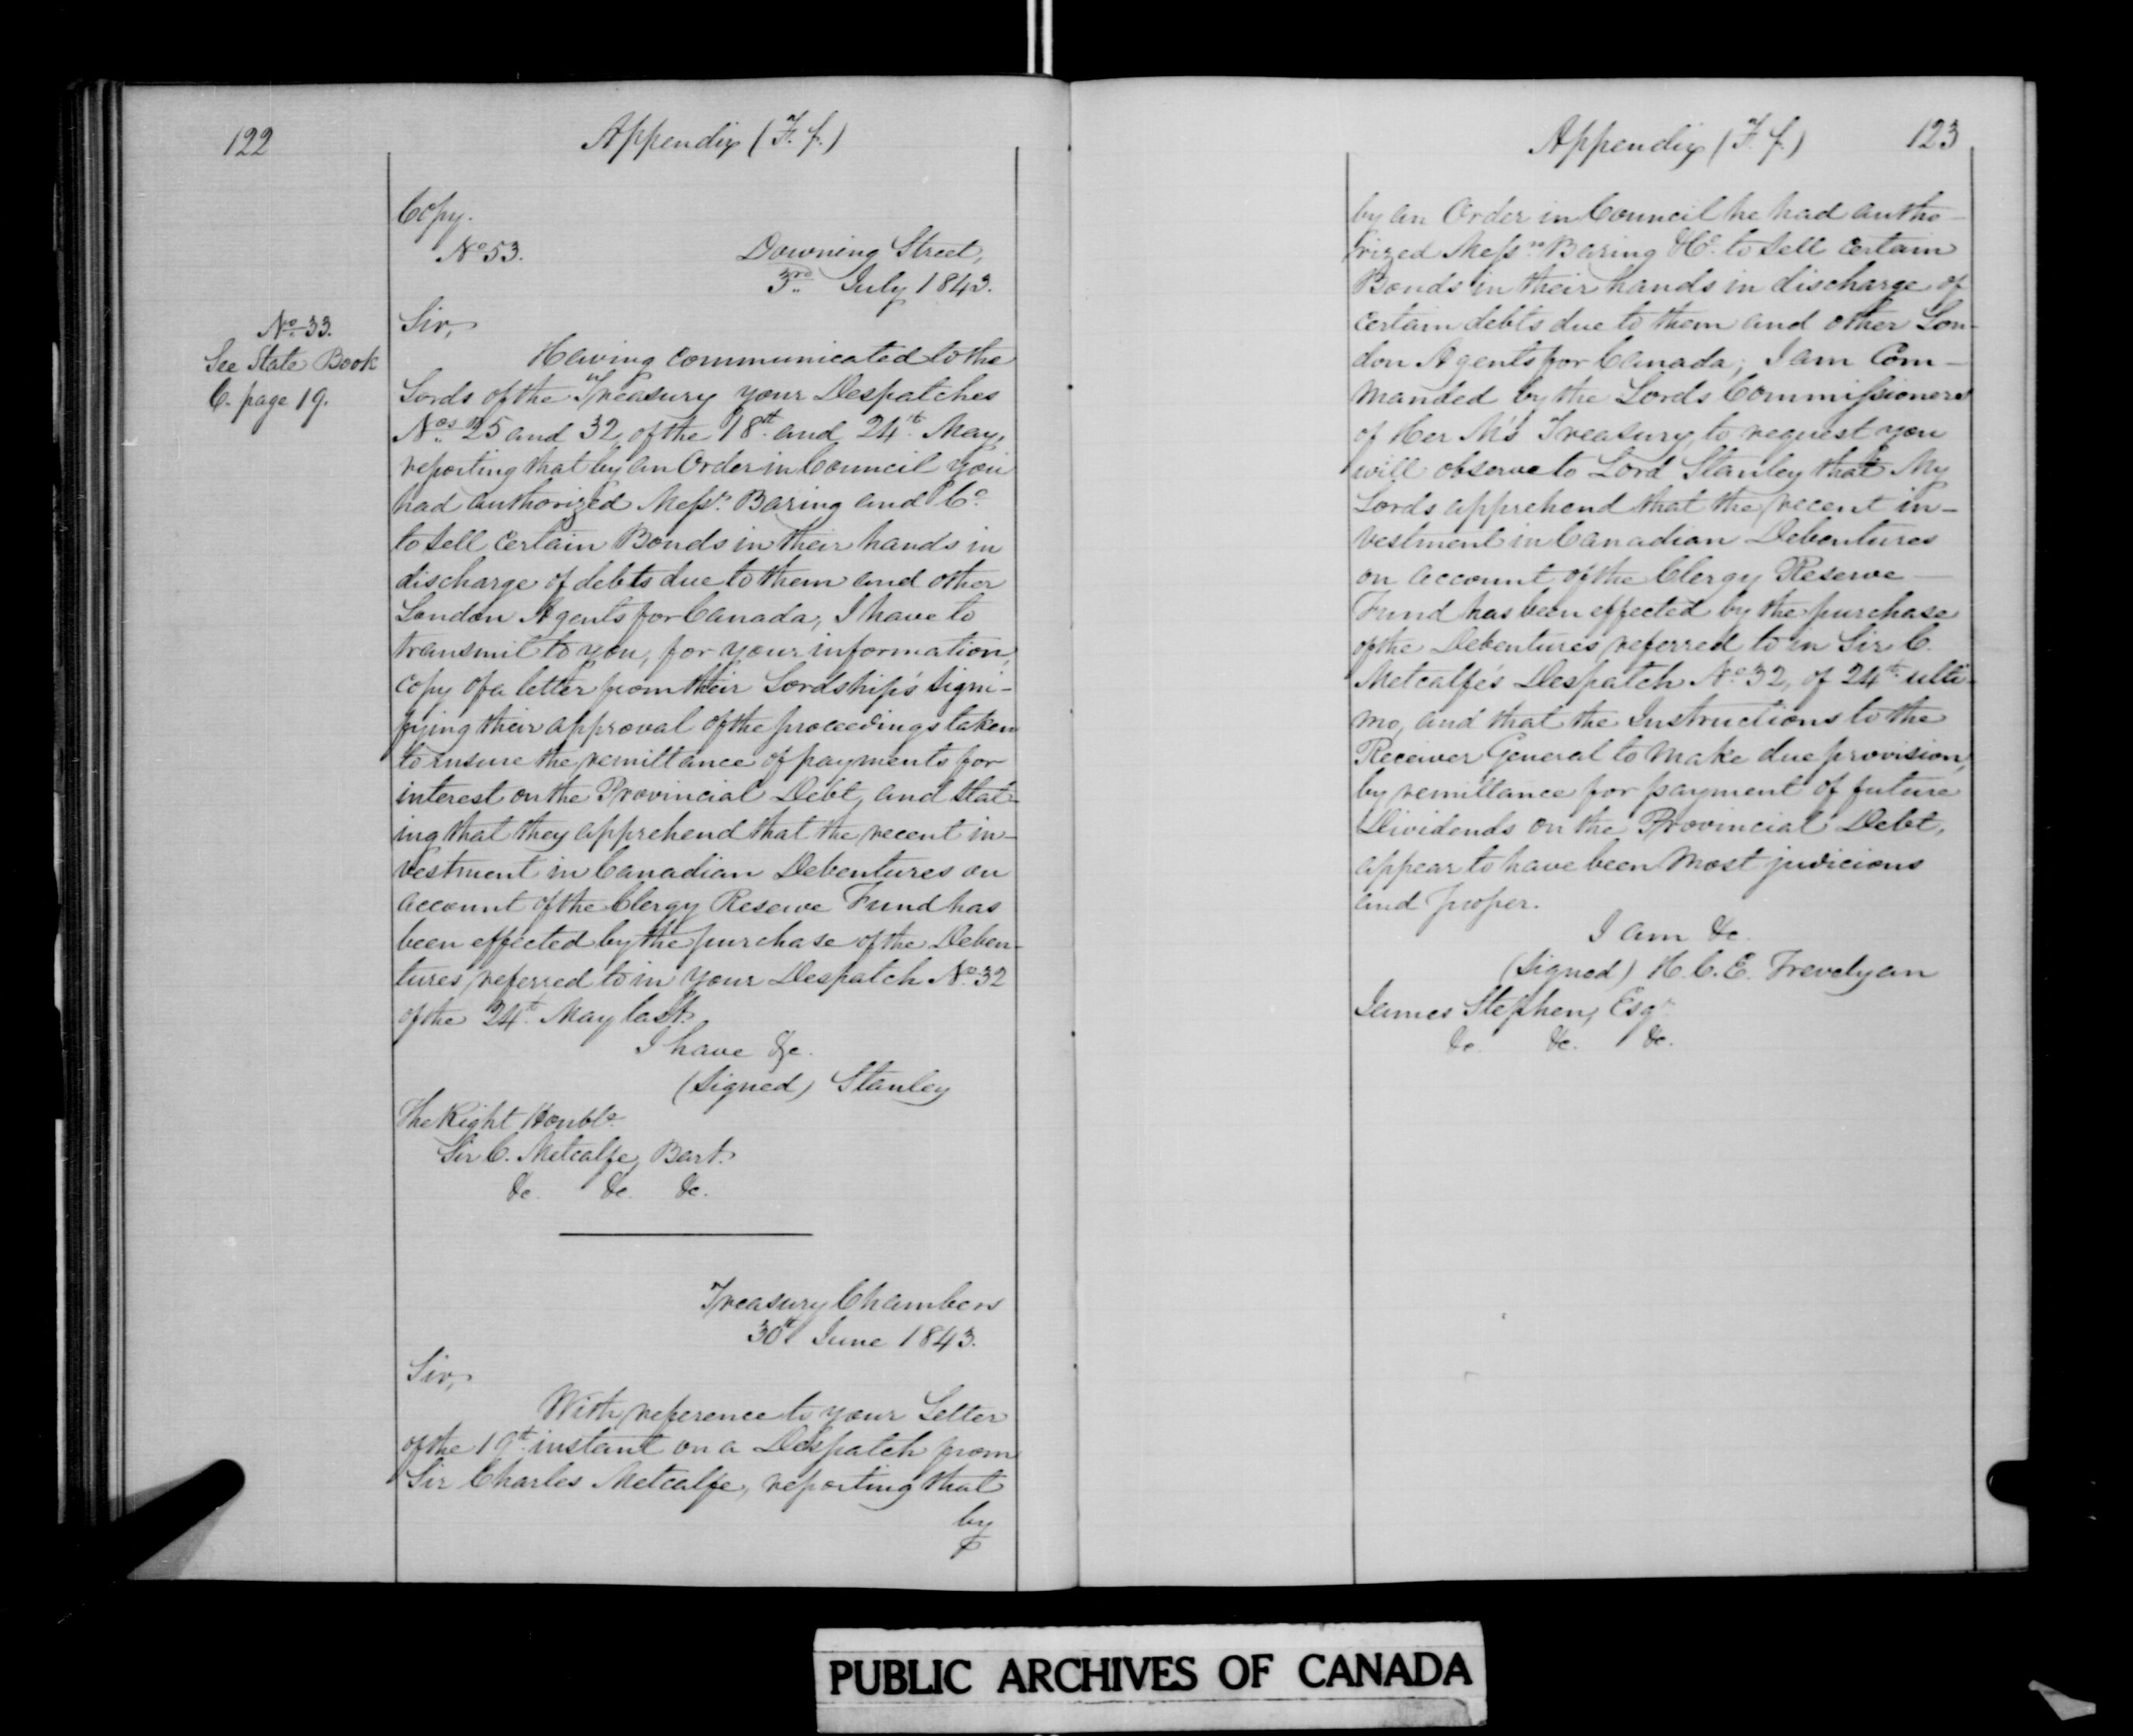 122
Appendix (F. f.)
Copy.
No. 53.
Downing Street,
3rd July 1843.
No. 33.
See State Book
C. page 19.
Sir,
Having communicated to the
Lords of the Treasury your Despatches
Nos. 25 and 32, of the 18th and 24th May,
reporting that by an Order in Council you
had authorized Messrs. Baring and Co.
to sell certain Bonds in their hands in
discharge of debts due to them and other
London Agents for Canada, I have to
transmit to you, for your information,
copy of a letter from their Lordship's signi-
fying their approval of the proceedings taken
to insure the remittance of payments for
interest on the Provincial Debt, and stat-
ing that they apprehend that the recent in-
vestment in Canadian Debentures on
account of the Clergy Reserve Fund has
been effected by the purchase of the Deben-
tures referred to in your Despatch No. 32
of the 24th May last.
I have &c.
(Signed) Stanley
The Right Honble.
Sir C. Metcalfe, Bart.
&c. &c. &c.
Treasury Chambers
30th June 1843.
Sir,
With reference to your Letter
of the 19th instant on a Despatch from
Sir Charles Metcalfe, reporting that
by
Appendix (F. f.)
123
by an Order in Council he had autho-
rized Messrs. Baring & Co. to sell certain
Bonds in their hands in discharge of
certain debts due to them and other Lon-
don Agents for Canada; I am Com-
manded by the Lords Commissioners
of Her M's Treasury to request you
will observe to Lord Stanley that My
Lords apprehend that the recent in-
vestment in Canadian Debentures
on account of the Clergy Reserve
Fund has been effected by the purchase
of the Debentures referred to in Sir C.
Metcalfe's Despatch No. 32, of 24th ulti-
mo, and that the Instructions to the
Receiver General to make due provision,
by remittance for payment of future
Dividends on the Provincial Debt,
appear to have been most judicious
and proper.
I am &c.
(Signed) H. C. E. Trevelyan
James Stephen, Esqr.
&c. &c. &c.
PUBLIC ARCHIVES OF CANADA